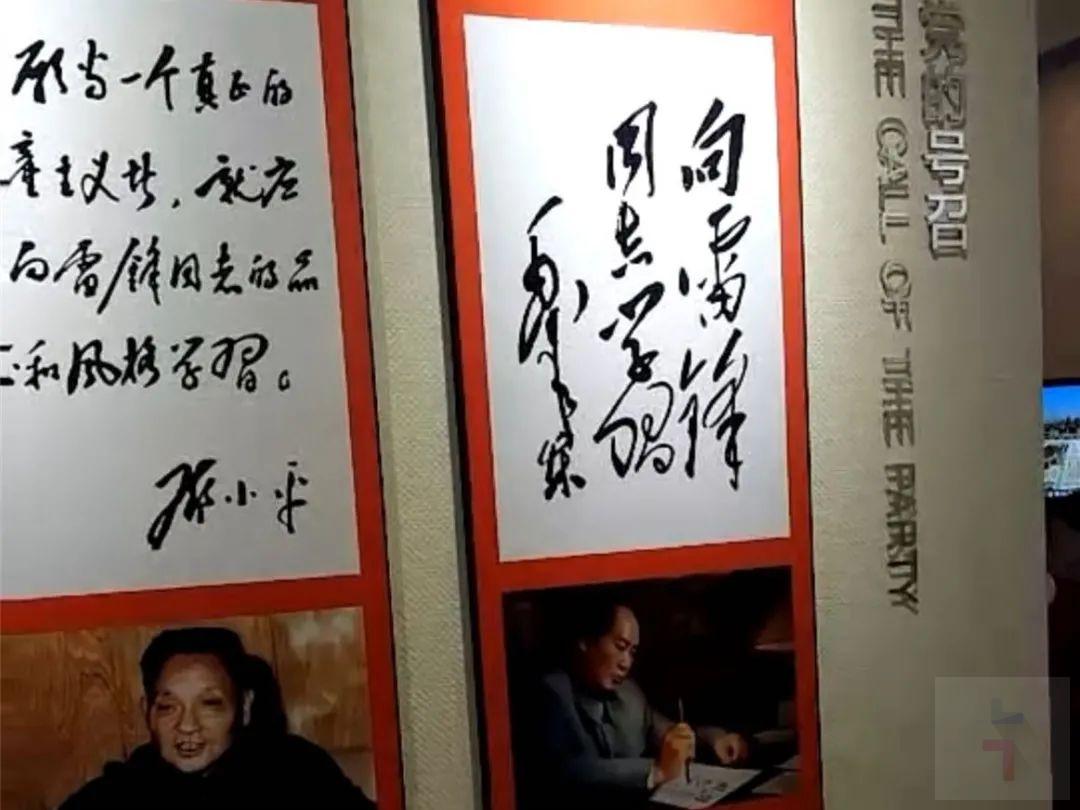 愿当一个真正的
產主义者，就应
向雷鋒同志的品
和風格学習。
邓小平
向雷鋒
同志学習
毛泽东
党的号召
THE CALL OF THE PARTY